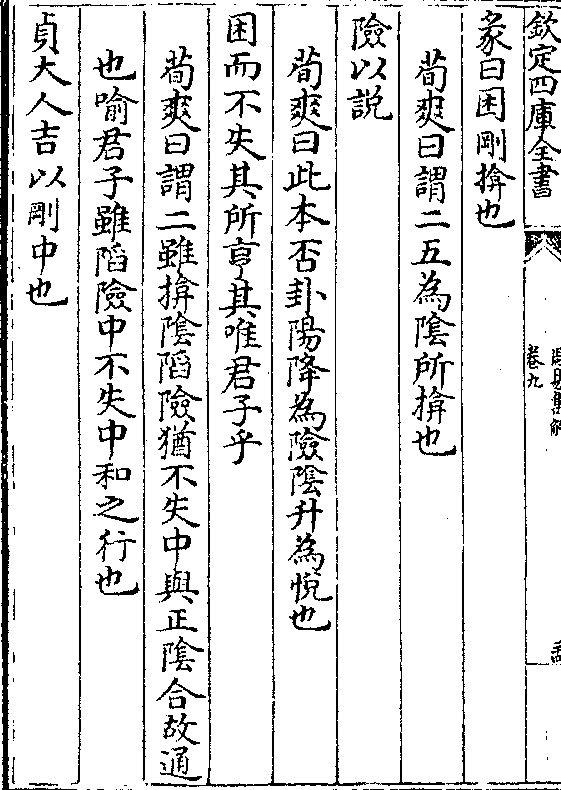 欽定四庫全書
周易集解
卷九
彖曰困剛揜也
荀爽曰謂二五為陰所揜也
險以說
荀爽曰此本否卦陽降為險陰升為悅也
困而不失其所亨其唯君子乎
荀爽曰謂二雖揜陰陷險猶不失中與正陰合故通
也喻君子雖陷險中不失中和之行也
貞大人吉以剛中也